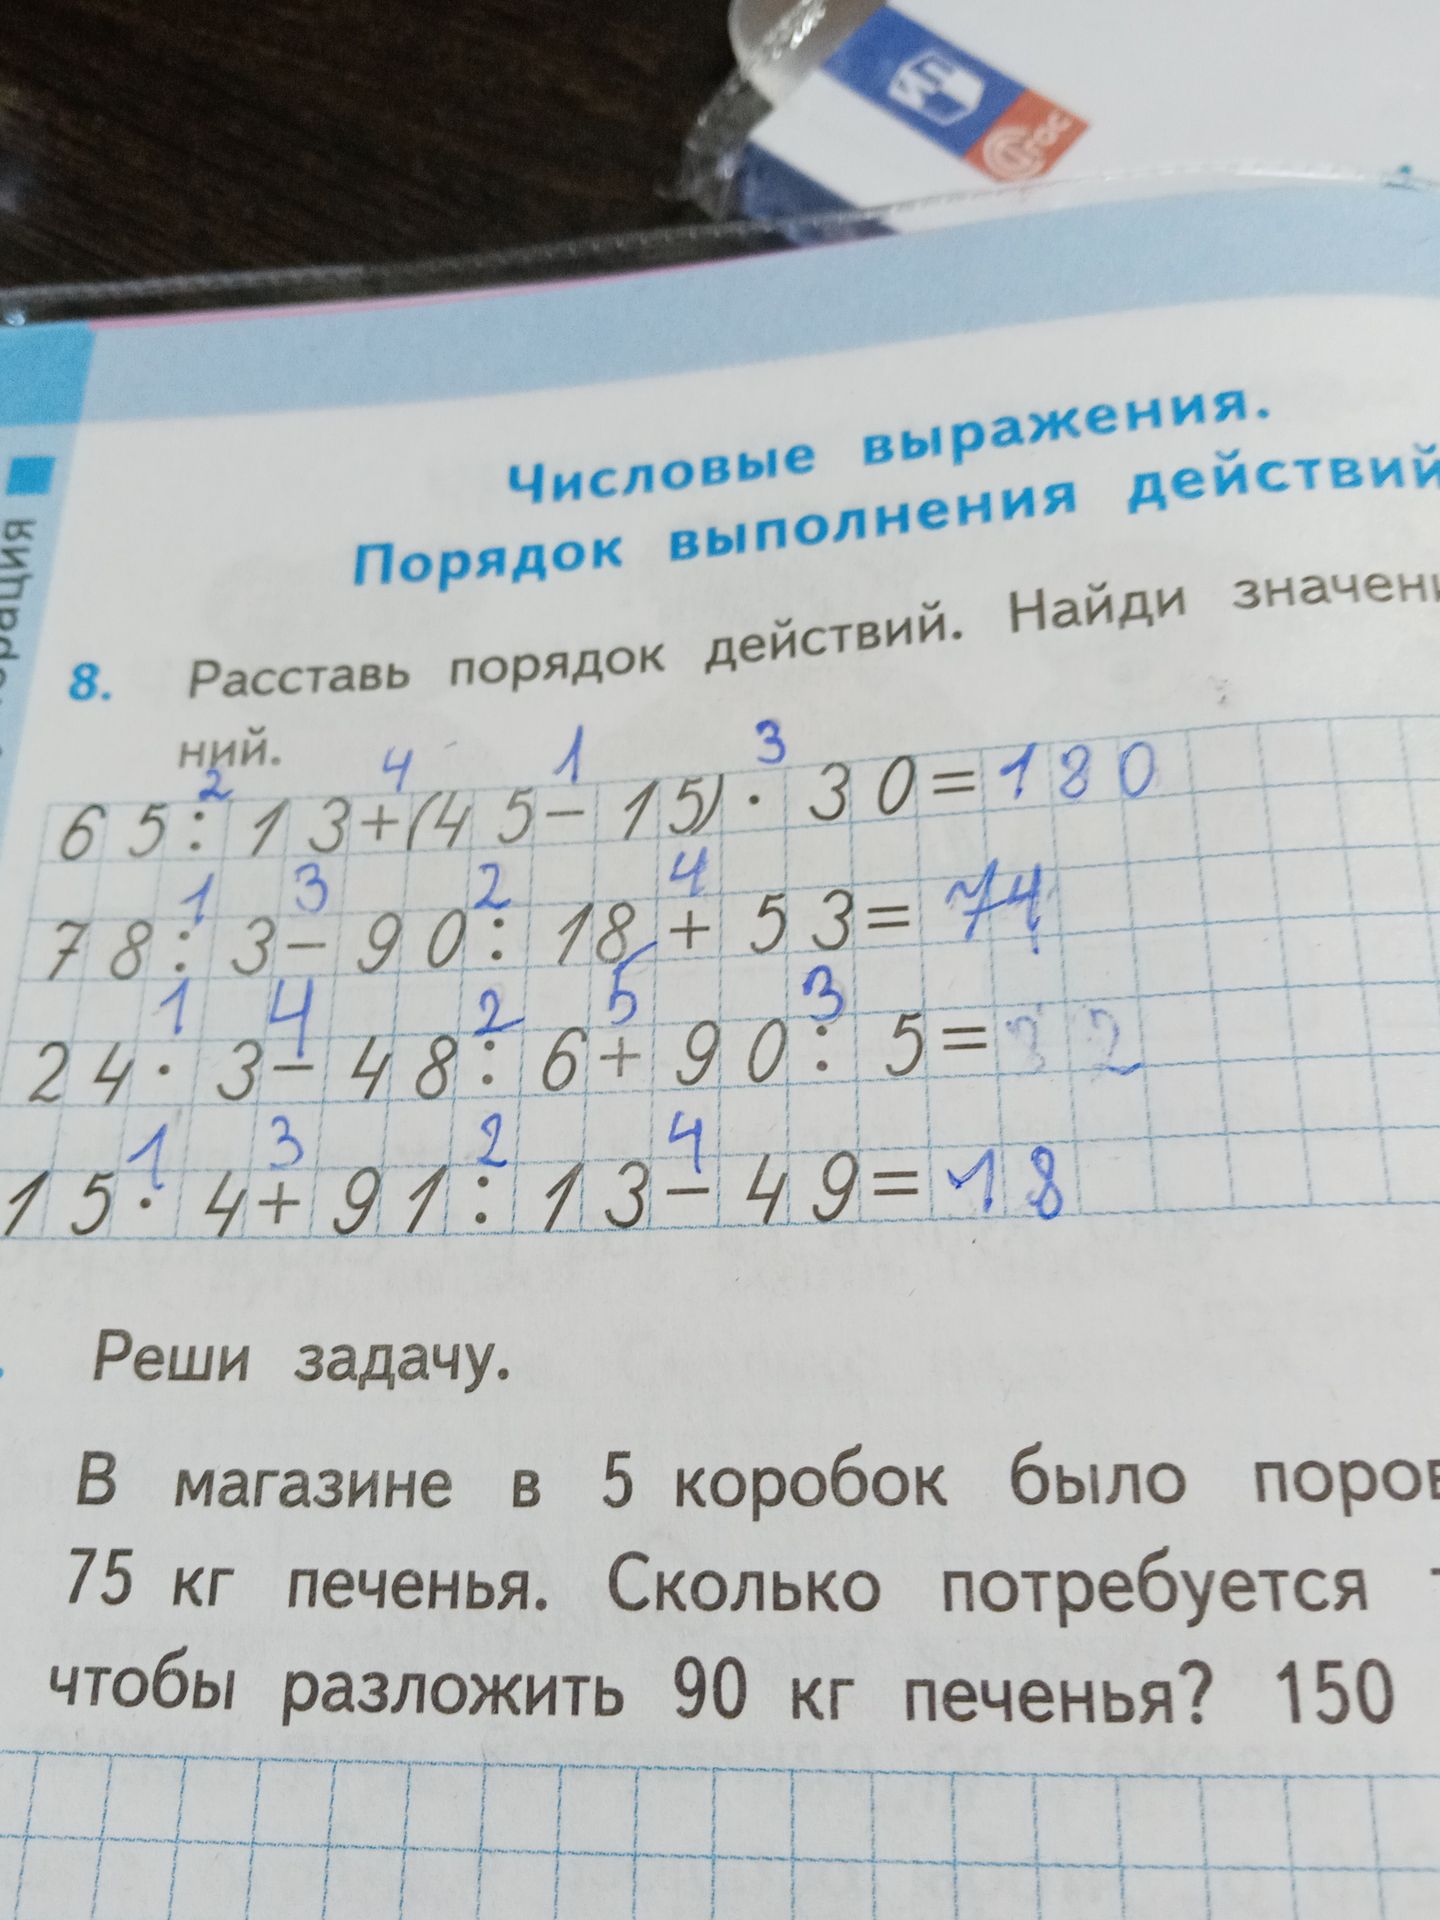 ФГОС
Числовые выражения.
Порядок выполнения действий
8. Расставь порядок действий. Найди значени
ний.
2 4 1 3
65 : 13 + (45 - 15) · 30 = 180
1 3 2 4
78 : 3 - 90 : 18 + 53 = 74
1 4 2 5 3
24 · 3 - 48 : 6 + 90 : 5 = 32
1 3 2 4
15 · 4 + 91 : 13 - 49 = 18
Реши задачу.
В магазине в 5 коробок было
75 кг печенья. Сколько потребуется
чтобы разложить 90 кг печенья? 150